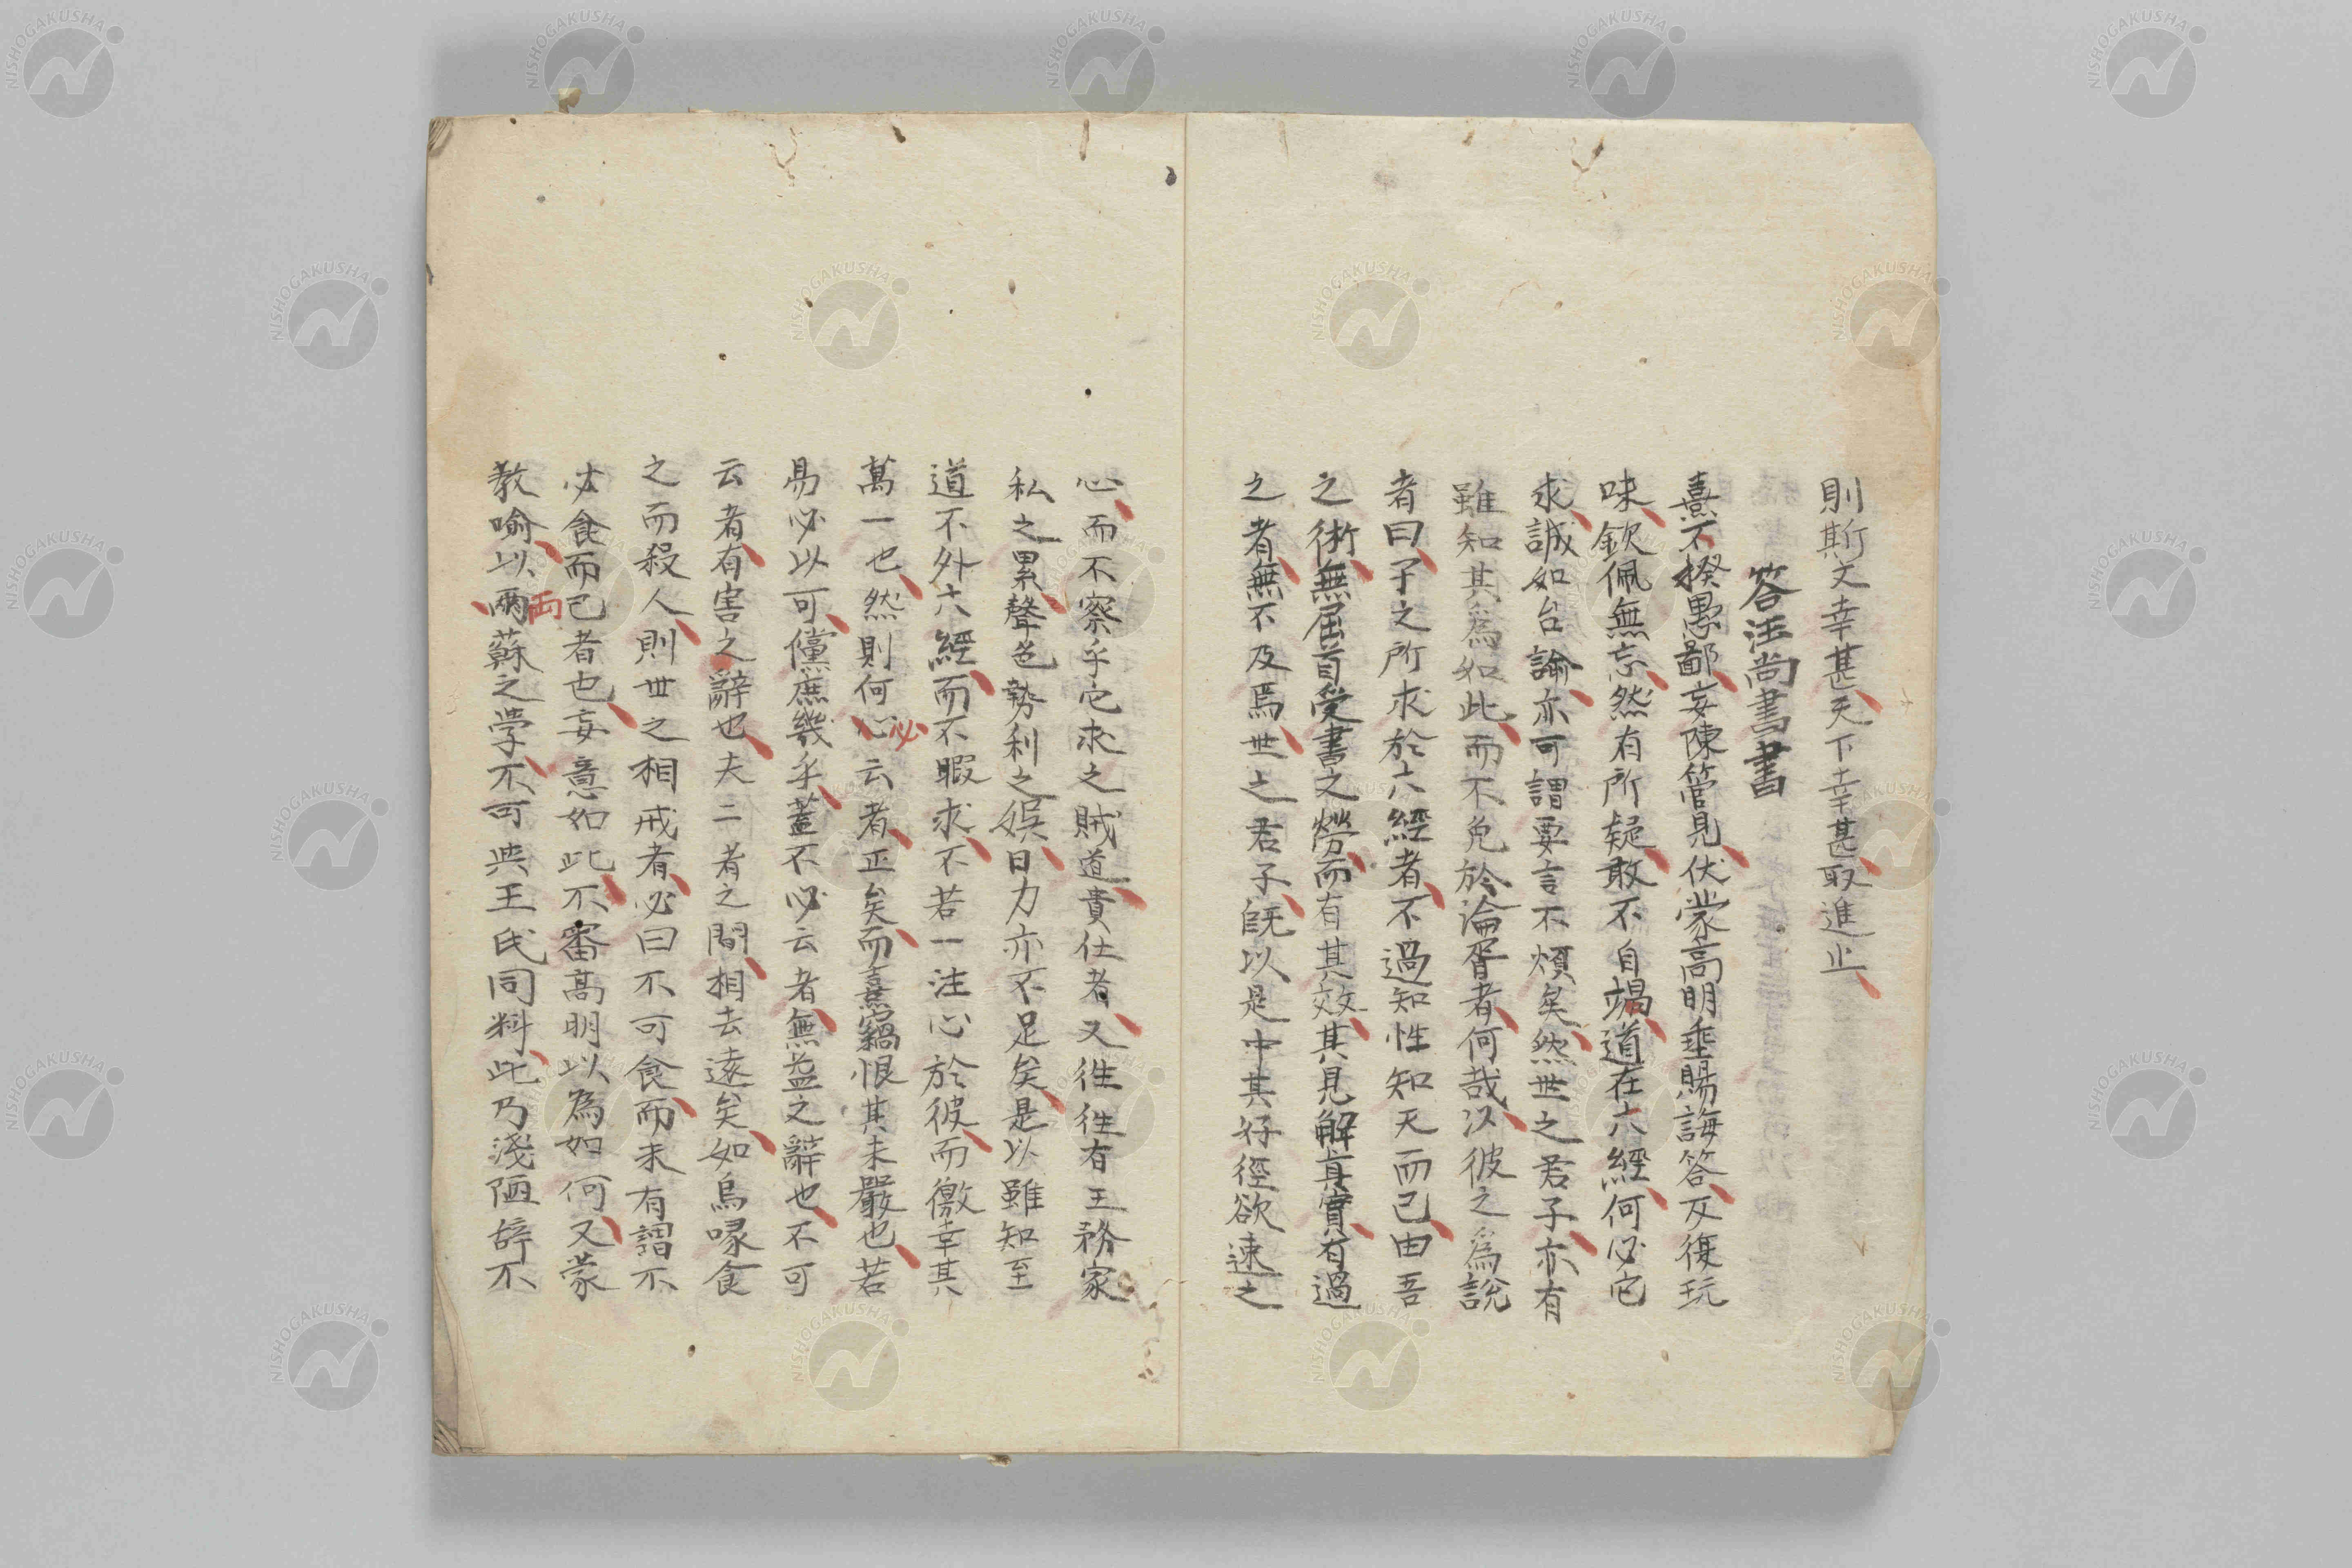 則斯文幸甚天下幸甚取進止
答汪尚書書
熹不揆愚鄙妄陳管見伏蒙高明垂賜誨答反復玩
味欽佩無忘然有所疑敢不自竭道在六經何必它
求誠如台諭亦可謂要言不煩矣然世之君子亦有
雖知其爲如此而不免於淪胥者何哉以彼之爲說
者曰子之所求於六經者不過知性知天而已由吾
之術無屈首受書之勞而有其效其見解真實有過
之者無不及焉世之君子既以是中其好徑欲速之
心而不察乎它求之賊道貴仕者又徃徃有王務家
私之累聲色勢利之娯日力亦不足矣是以雖知至
道不外六經而不暇求不若一注心於彼而徼幸其
萬一也然則何心云者正矣而熹竊恨其未嚴也若
必
易必以可儻庶幾乎蓋不必云者無益之辭也不可
云者有害之辭也夫二者之間相去遠矣如烏喙食
之而殺人則世之相戒者必曰不可食而未有謂不
必食而已者也妄意如此不審高明以為如何又蒙
教喻以兩蘇之学不可與王氏同科此乃淺陋辞不
両